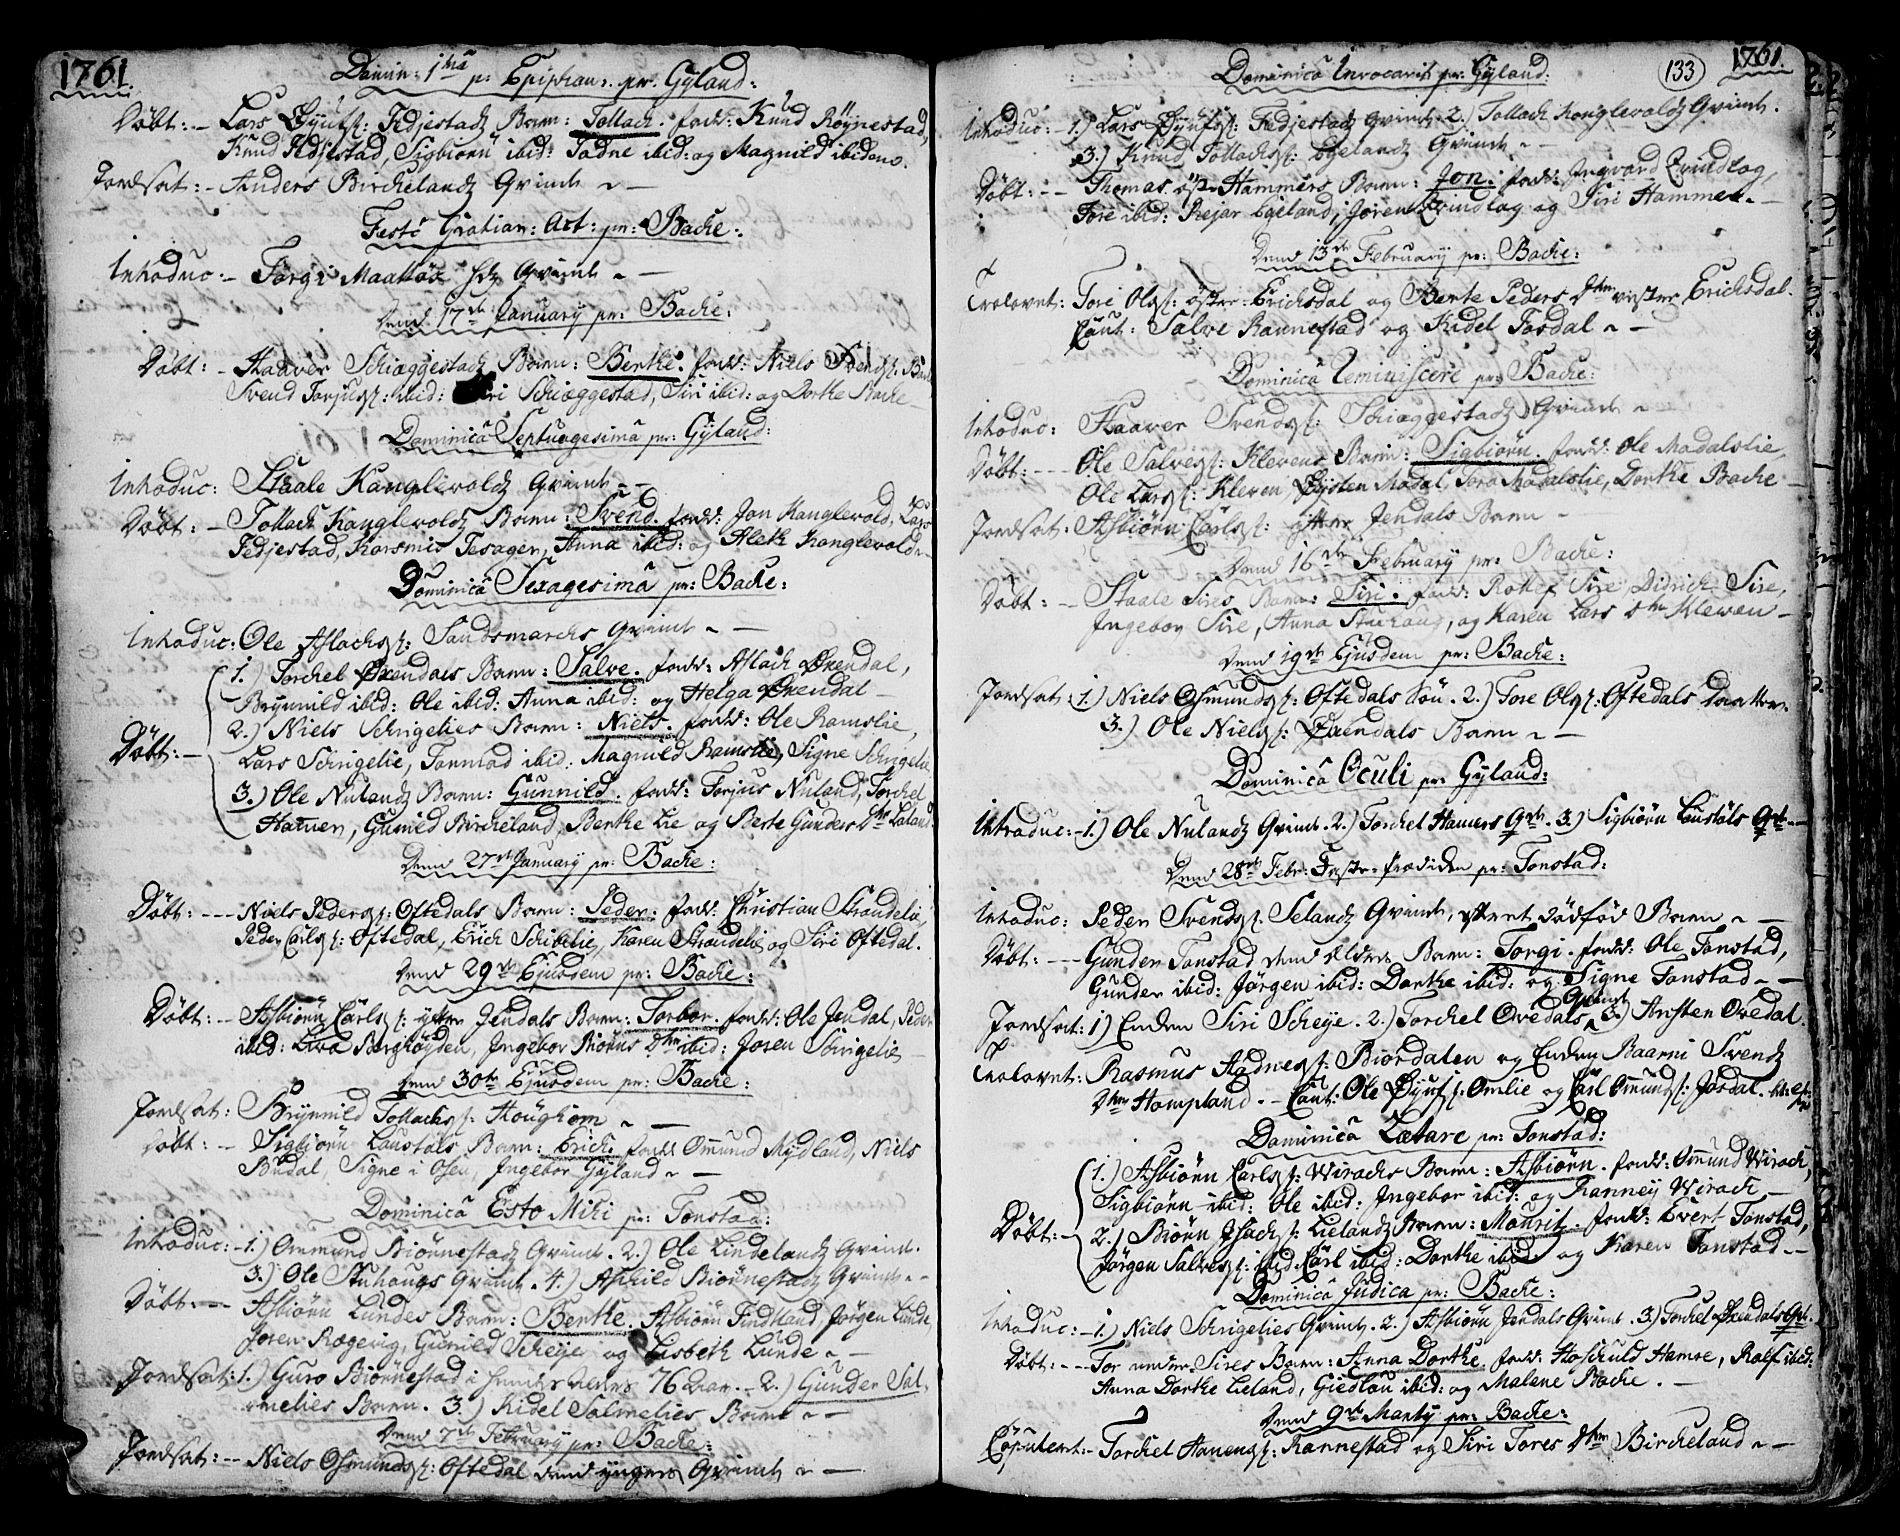 1761.
Domin: 1ma p: Epiphan: pr. Gyland:
Døbt: Lars Øyufs: Fedjestads Barn: Tollach. fadd: Knud Røynestad,
Knud Fedjestad, Sigbiörn ibid: Tadne ibid: og Magnild ibidem.
Jordsat: Anders Birchelands Qvinde
Festo Gratiar: Act: pr: Backe:
Introduc: Torgi Maalløs Qvinde
Dend 17de January pr: Backe:
Døbt: Haaver Schieggestads Barn: Berthe. fadd: Niels Svends:
Svend Torjus: ibid: Siri Schieggestad, Siri ibid: og Dorthe Backe
Dominicâ Septuagesimâ pr: Gyland:
Introduc: Staale Kanglevolds Qvinde
Døbt: Tollach Kanglevolds Barn: Svend. fadd: Jon Kanglevold, Lars
Fedjestad, Karsmis Tesager, Anna ibid: og Aleth Kanglevold
Dominicâ Sexagesimâ pr: Backe:
Introduc: Ole Aslachs: Sandsmarchs Qvinde
1.) Torchel Øxendals Barn: Salve. fadd: Aslach Øxendal,
Brynnild ibid: Ole ibid: Anna ibid: og Helga Øxendal
2.) Niels Schrigelies Barn: Niels. fadd: Ole Ramslie,
Døbt: Lars Schrigelie, Tormod ibid: Magnild Ramslie, Signe Schrigelie
3.) Ole Nulands Barn: Gunnild. fadd: Torjus Nuland, Torchel
Hamer, Gunild Bircheland, Berthe Lie og Berte Gunders Dtr Laland
Dend 27de January pr: Backe:
Døbt: Niels Peders: Oftedals Barn: Peder. fadd: Christian Strandelie,
Peder Carls: Oftedal, Erich Schibelie, Karen Strandelie og Siri Oftedal.
Dend 29de Ejusdem pr: Backe:
Døbt: Asbiörn Carls: yttre Jendals Barn: Torbor. fadd: Ole Jendal, Peder
ibid: Liva Berghøyden, Ingebor Biörns Dtr ibid: Joren Schrigelie
Dend 30te Ejusdem pr: Backe:
Jordsat: Brynnild Tollachs: Houghom
Døbt: Sigbiörn Laustøls Barn: Erich. fadd: Ommund Mydland, Niels
Budal, Signe i Osen, Ingebor Gyland
Dominicâ Esto Mihi pr: Tonstad:
Introduc: 1.) Ommund Biönnestads Qvinde. 2.) Ole Lindelands Qvinde.
3.) Ole Stuhougs Qvinde. 4.) Aschild Biönnestads Qvinde
Døbt: Asbiörn Lundes Barn: Berthe. Asbiörn Findland, Jörgen Lunde,
Joren Røgevig, Gunild Scheje og Lisbeth Lunde
Jordsat: 1.) Guro Biönnestad i hendes alders 76 aar. 2.) Gunder Sal-
melies Barn. 3.) Kidel Salmelies Barn
Dend 7de February pr: Backe:
Jordsat: Niels Osmunds: Oftedal dend yngres Qvinde
133
1761.
Dominicâ Invocavit pr: Gyland:
Introduc: 1.) Lars Øyufs: Fedjestads Qvinde 2.) Tollach Kanglevolds Qvinde.
3.) Knud Tollachs: Egelands Qvinde
Døbt: Thomas Hammers Barn: Jon. fadd: Ingvord Qvindlog,
Tore ibid: Rejar Egeland, Joren Qvindlog og Siri Hammer.
Dend 13de February pr: Backe:
Trolovet: Tore Ols: østre Erichsdal og Berte Peders Dtter vestre Erichsdal.
Caut: Salve Rannestad og Kidel Josdal
Dominicâ Reminiscere pr: Backe:
Introduc: Haaver Svends: Schieggestads Qvinde
Døbt: Ole Salves: Klevens Barn: Sigbiörn. fadd: Ole Madalslie,
Ole Lars: Kleven, Øysten Madal, Tora Madalslie, Dorthe Backe
Jordsat: Asbiörn Carls: yttre Jendals Barn
Dend 16de February pr: Backe:
Døbt: Staale Sires Barn: Siri. fadd: Rollef Sire, Didrich Sire,
Ingebor Sire, Anna Stuhoug, og Karen Lars Dtr Kleven
Dend 19de Ejusdem pr: Backe:
Jordsat: 1.) Niels Osmunds: Oftedals Sön. 2.) Tore Ols: Oftedals Daatter.
3.) Ole Niels: Øxendals Barn
Dominicâ Oculi pr: Gyland:
Introduc: 1.) Ole Nulands Qvinde. 2.) Torchel Hamers Qv. 3.) Sigbiörn Laustøls Qv.
Dend 28de Febr: Faste-Prædiken pr: Tonstad:
Introduc: Peder Svends: Selands Qvinde, efter et dødfød Barn
Døbt: Gunder Tonstad dend eldres Barn: Torgi. fadd: Ole Tonstad,
Gunder ibid: Jörgen ibid: Dorthe ibid: og Signe Tonstad
Jordsat: 1) Enken Siri Scheje. 2.) Torchel Ovedals Qvinde 3.) Arsten Ovedal.
Trolovet: Rasmus Aadnes: Biordalen og Enken Baarni Svends
Dtter Hompland. Caut: Ole Øyufs: Omlie og Carl Ommunds: Josdal.
Dominicâ Lætare pr: Tonstad:
1.) Asbiörn Carls: Wirachs Barn: Asbiörn. fadd: Ommund Wirach,
Sigbiörn ibid: Ole ibid: Ingebor ibid: og Ranney Wirach
Døbt: 2.) Biörn Isachs: Lielands Barn: Mauritz. fadd: Evert Tonstad,
Jörgen Salves: ibid Carl ibid: Dorthe ibid: og Karen Tonstad
Dominicâ Judica pr: Backe:
Introduc: 1.) Niels Schrigelies Qvinde. 2.) Asbiörn Jendals Qvinde. 3.) Torchel Øxendals Qv.
Døbt: Tor nedre Sires Barn: Anna Dorthe. fadd: Hoschuld Hamre, Rolf ibid:
Anna Dorthe Lieland, Giedlou ibid: og Malene Backe.
Dend 9de Marty pr: Backe:
Copuleret: Torchel Hanens: Rannestad og Siri Tores Dtter Bircheland